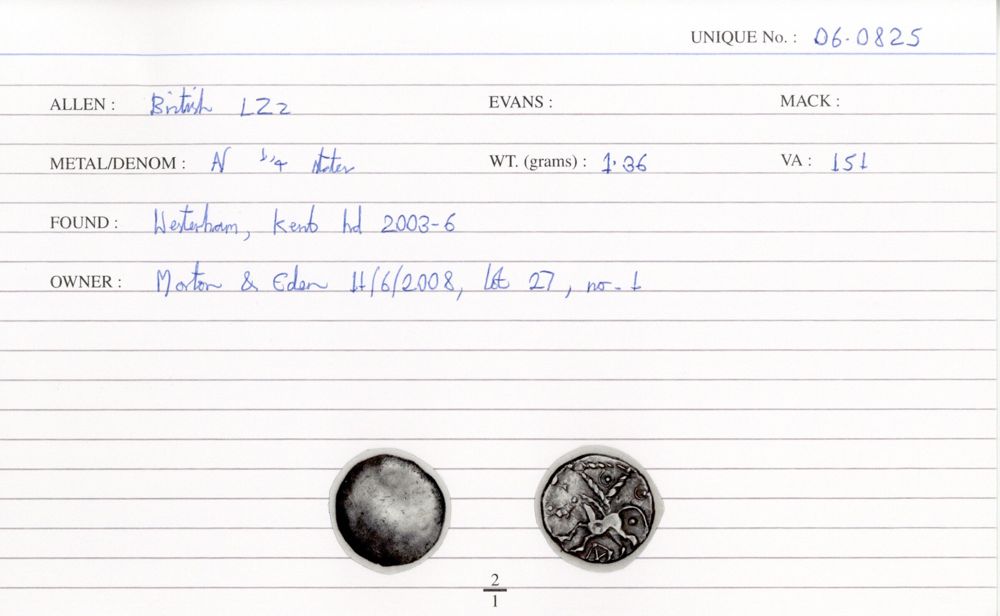 UNIQUE No. : 06·0825
ALLEN : British LZ2 EVANS : MACK :
METAL/DENOM : N 1/4 stater WT. (grams) : 1·36 VA : 151
FOUND : Westerham, Kent hd 2003-6
OWNER : Morton & Eden 11/6/2008, lot 27, no. 1
2
1